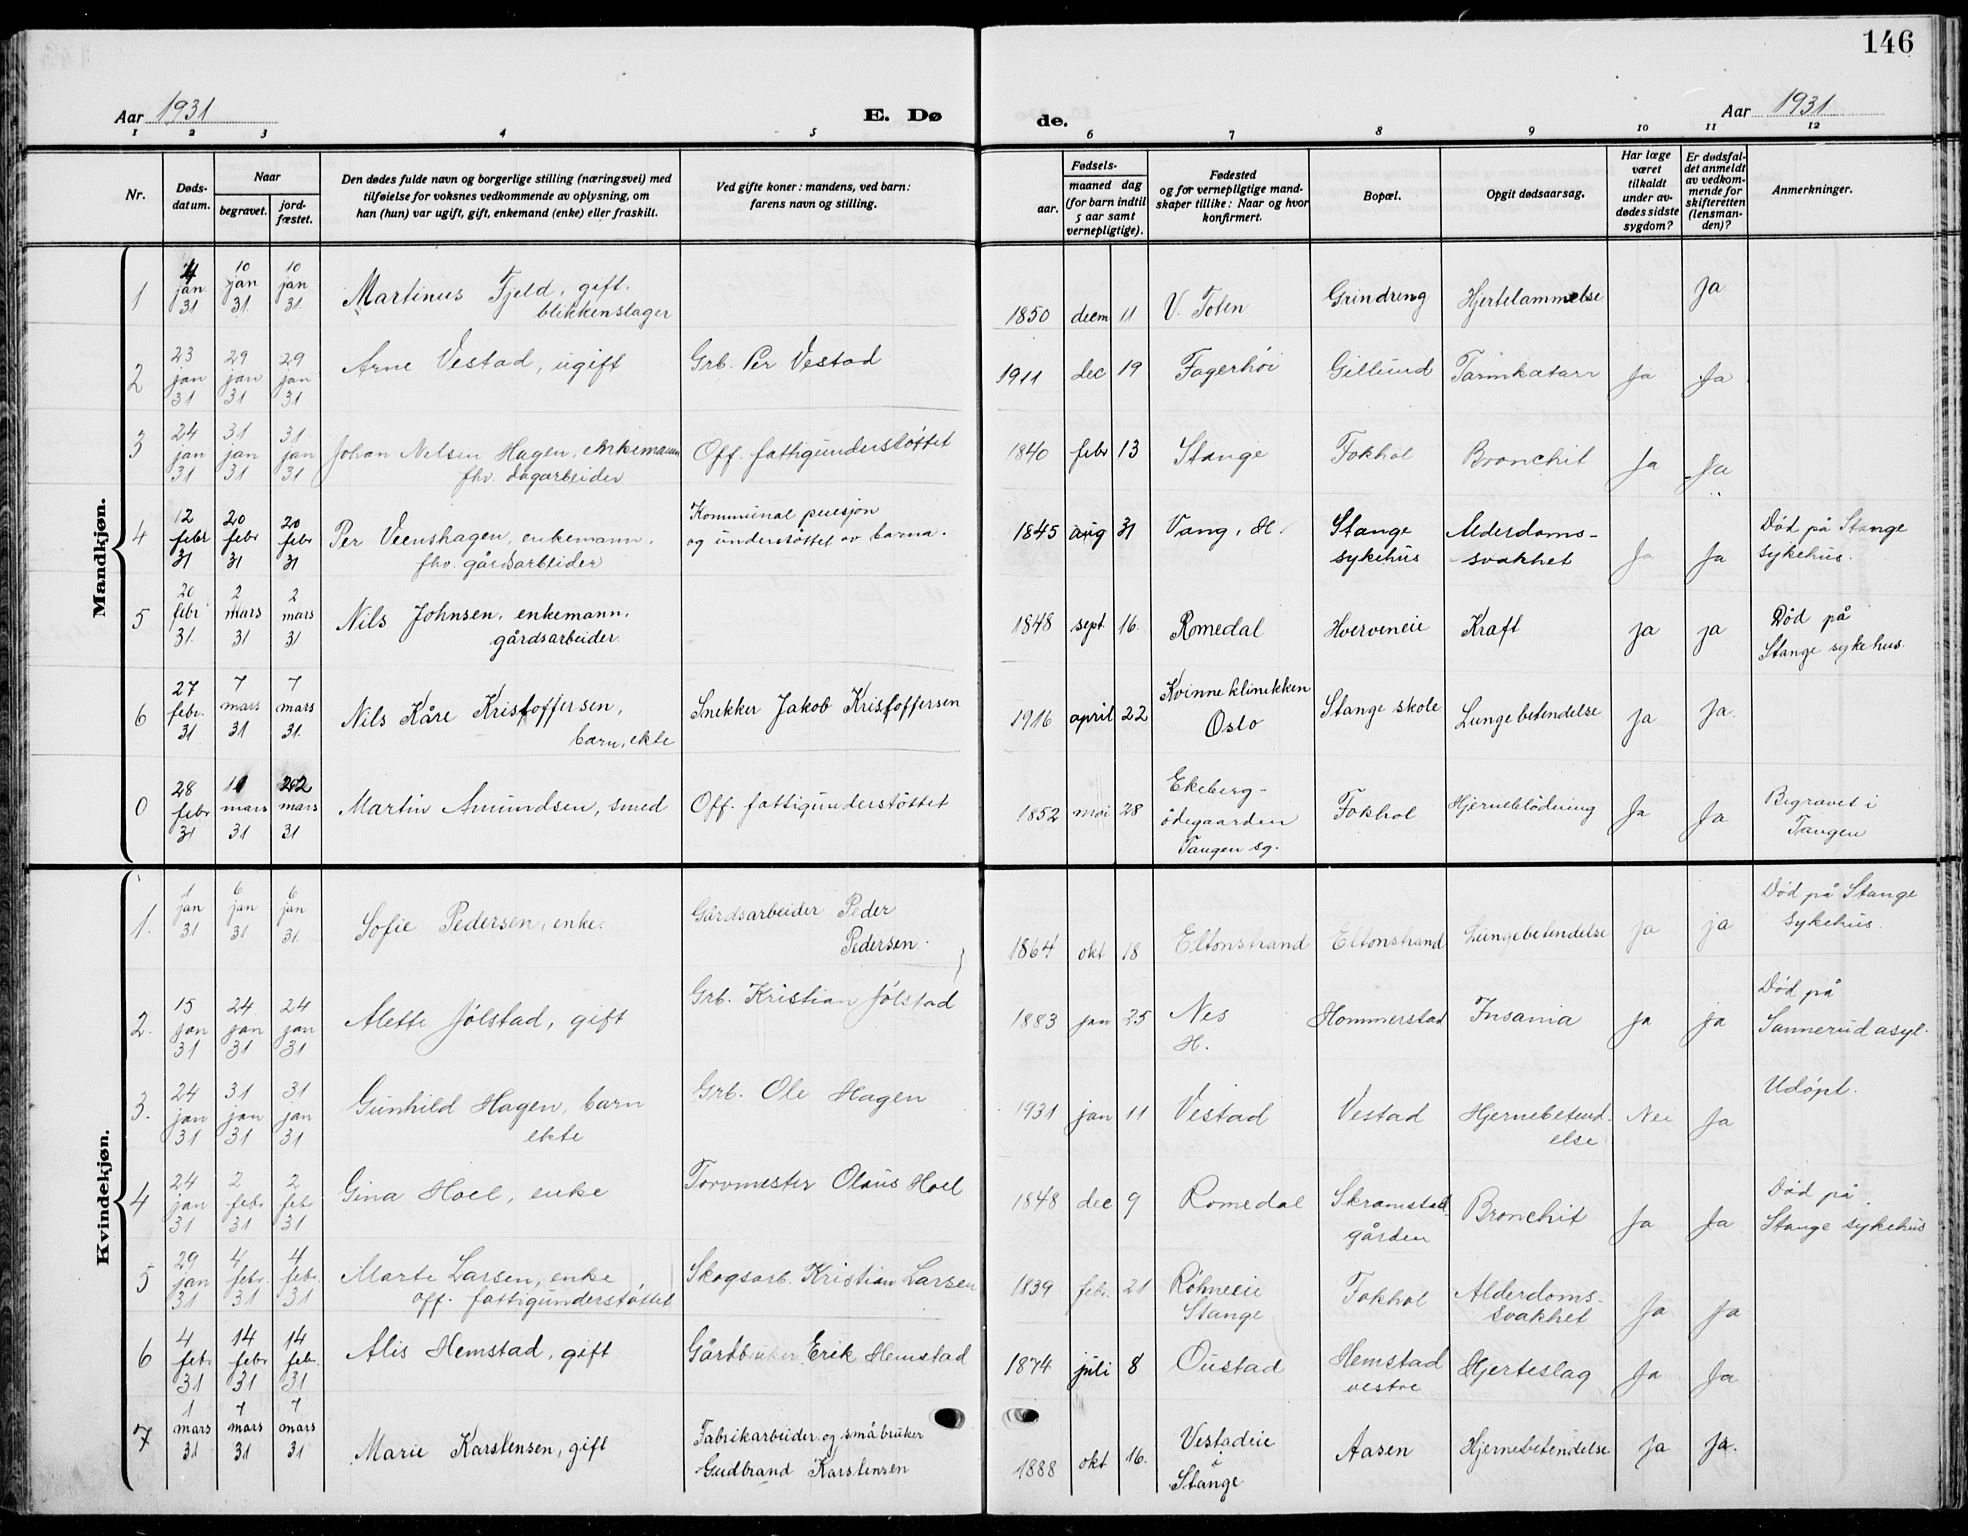 146
Aar 1931
E. Dø
de.
Aar 1931
1 2 3 4 5 6 7 8 9 10 11 12
Nr.
Døds-
datum.
Naar
begravet.
jord-
fæstet.
Den dødes fulde navn og borgerlige stilling (næringsvei) med
tilføielse for voksnes vedkommende av oplysning, om
han (hun) var ugift, gift, enkemand (enke) eller fraskilt.
Ved gifte koner: mandens, ved barn:
farens navn og stilling.
Fødsels-
aar.
maaned dag
(for barn indtil
5 aar samt
vernepligtige).
Fødested
og for vernepligtige mand-
skaper tillike: Naar og hvor
konfirmert.
Bopæl.
Opgit dødsaarsag.
Har læge
været
tilkaldt
under av-
dødes sidste
sygdom?
Er dødsfal-
det anmeldt
av vedkom-
mende for
skifteretten
(lensman-
den)?
Anmerkninger.
Mandkjøn.
1
4 jan 31
10 jan 31.
10 jan 31.
Martinus Fjeld, gift.
blikkenslager
1850 decm 11
V. Toten
Grindreng
Hjertelammelse
Ja
2
23 jan 31
29 jan 31
29 jan 31
Arne Vestad, ugift
Grb. Per Vestad
1911 dec 19
Fagerhöi
Gillund
Tarmkatarr
Ja
Ja
3
24 jan 31
31 jan 31
31 jan 31
Johan Nelsen Hagen, enkemann
fhv. dagarbeider
Off. fattigunderstöttet
1840 febr 13
Stange
Fokhol
Bronchit
Ja
Ja
4
12 febr 31
20 febr 31
20 febr 31
Per Veenshagen, enkemann.
fhv. gårdsarbeider
Kommunal pensjon
og understöttet av barna.
1845 aug 31
Vang, H.
Stange
sykehus
Alderdoms-
svakhet
Ja
Ja
Död på Stange
sykehus.
5
20 febr 31.
2 mars 31
2 mars 31
Nils Johnsen, enkemann.
gårdsarbeider.
1848 sept. 16.
Romedal
Hverveneie
Kræft
ja
ja
Död på
Stange sykehus.
6
27 febr. 31
7 mars 31
7 mars 31.
Nils Kåre Kristoffersen,
barn, ekte
Snekker Jakob Kristoffersen
1916 april 22
Kvinneklinikken
Oslo
Stange skole
Lungebetendelse
ja
Ja.
0
28 febr 31
mars 31
mars 31
Martin Amundsen, smed
Off. fattigunderstöttet
1852 mai 28
Ekeberg-
ödegaarden
Tangen sg.
Fokhol
Hjerneblödning
Ja
Ja
Begravet i
Tangen
Kvindekjøn.
1.
1 jan 31
6 jan 31
6 jan 31.
Sofie Pedersen, enke.
Gårdsarbeider Peder
Pedersen.
1864 okt 18
Eltonstrand
Eltonstrand
Lungebetendelse
ja
ja
Död på Stange
sykehus.
2.
15 jan 31
24 jan 31
24 jan 31
Alette Jölstad, gift
Grb. Kristian Jölstad
1883 jan 25
Nes
H.
Hommerstad
Insania
ja
ja
Död på
Sannerud asyl.
3.
24 jan 31
31 jan 31
31 jan 31
Gunhild Hagen, barn
ekte
Grb. Ole Hagen
1931 jan 11
Vestad
Vestad
Hjernebetend-
else
Nei
Ja
Udöpt.
4
24 jan 31
2 febr 31
2 febr 31
Gina Hoel, enke
Torvmester Olaus Hoel
1848 dec 9
Romedal
Skramstad-
gården
Bronchit
Ja
Ja
Död på
Stange sykehus
5
29 jan 31
4 febr. 31
4 febr. 31
Marte Larsen, enke
off. fattigunderstöttet
Skogsarb. Kristian Larsen
1839 febr. 21
Röhneeie
Stange
Fokhol
Alderdoms-
svakhet
Ja
Ja
6
4 febr 31
14 febr 31
14 febr. 31
Alis Hemstad, gift
Gårdbruker Erik Hemstad
1874 juli 8
Oustad
Hemstad
vestre
Hjerteslag
Ja
Ja
7
1 mars 31
7 mars 31
7 mars 31
Marie Karstensen, gift
Fabrikarbeider og småbruker
Gudbrand Karstensen
1888 okt 16.
Vestadeie
i
Stange
Aasen
Hjernebetendelse
Ja
Ja.